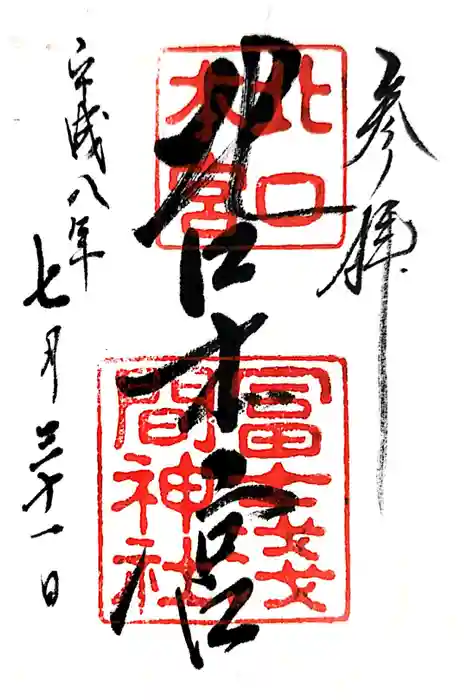 参拝
北口本宮
北口
本宮
冨士浅
間神社
平成八年
七月三十一日